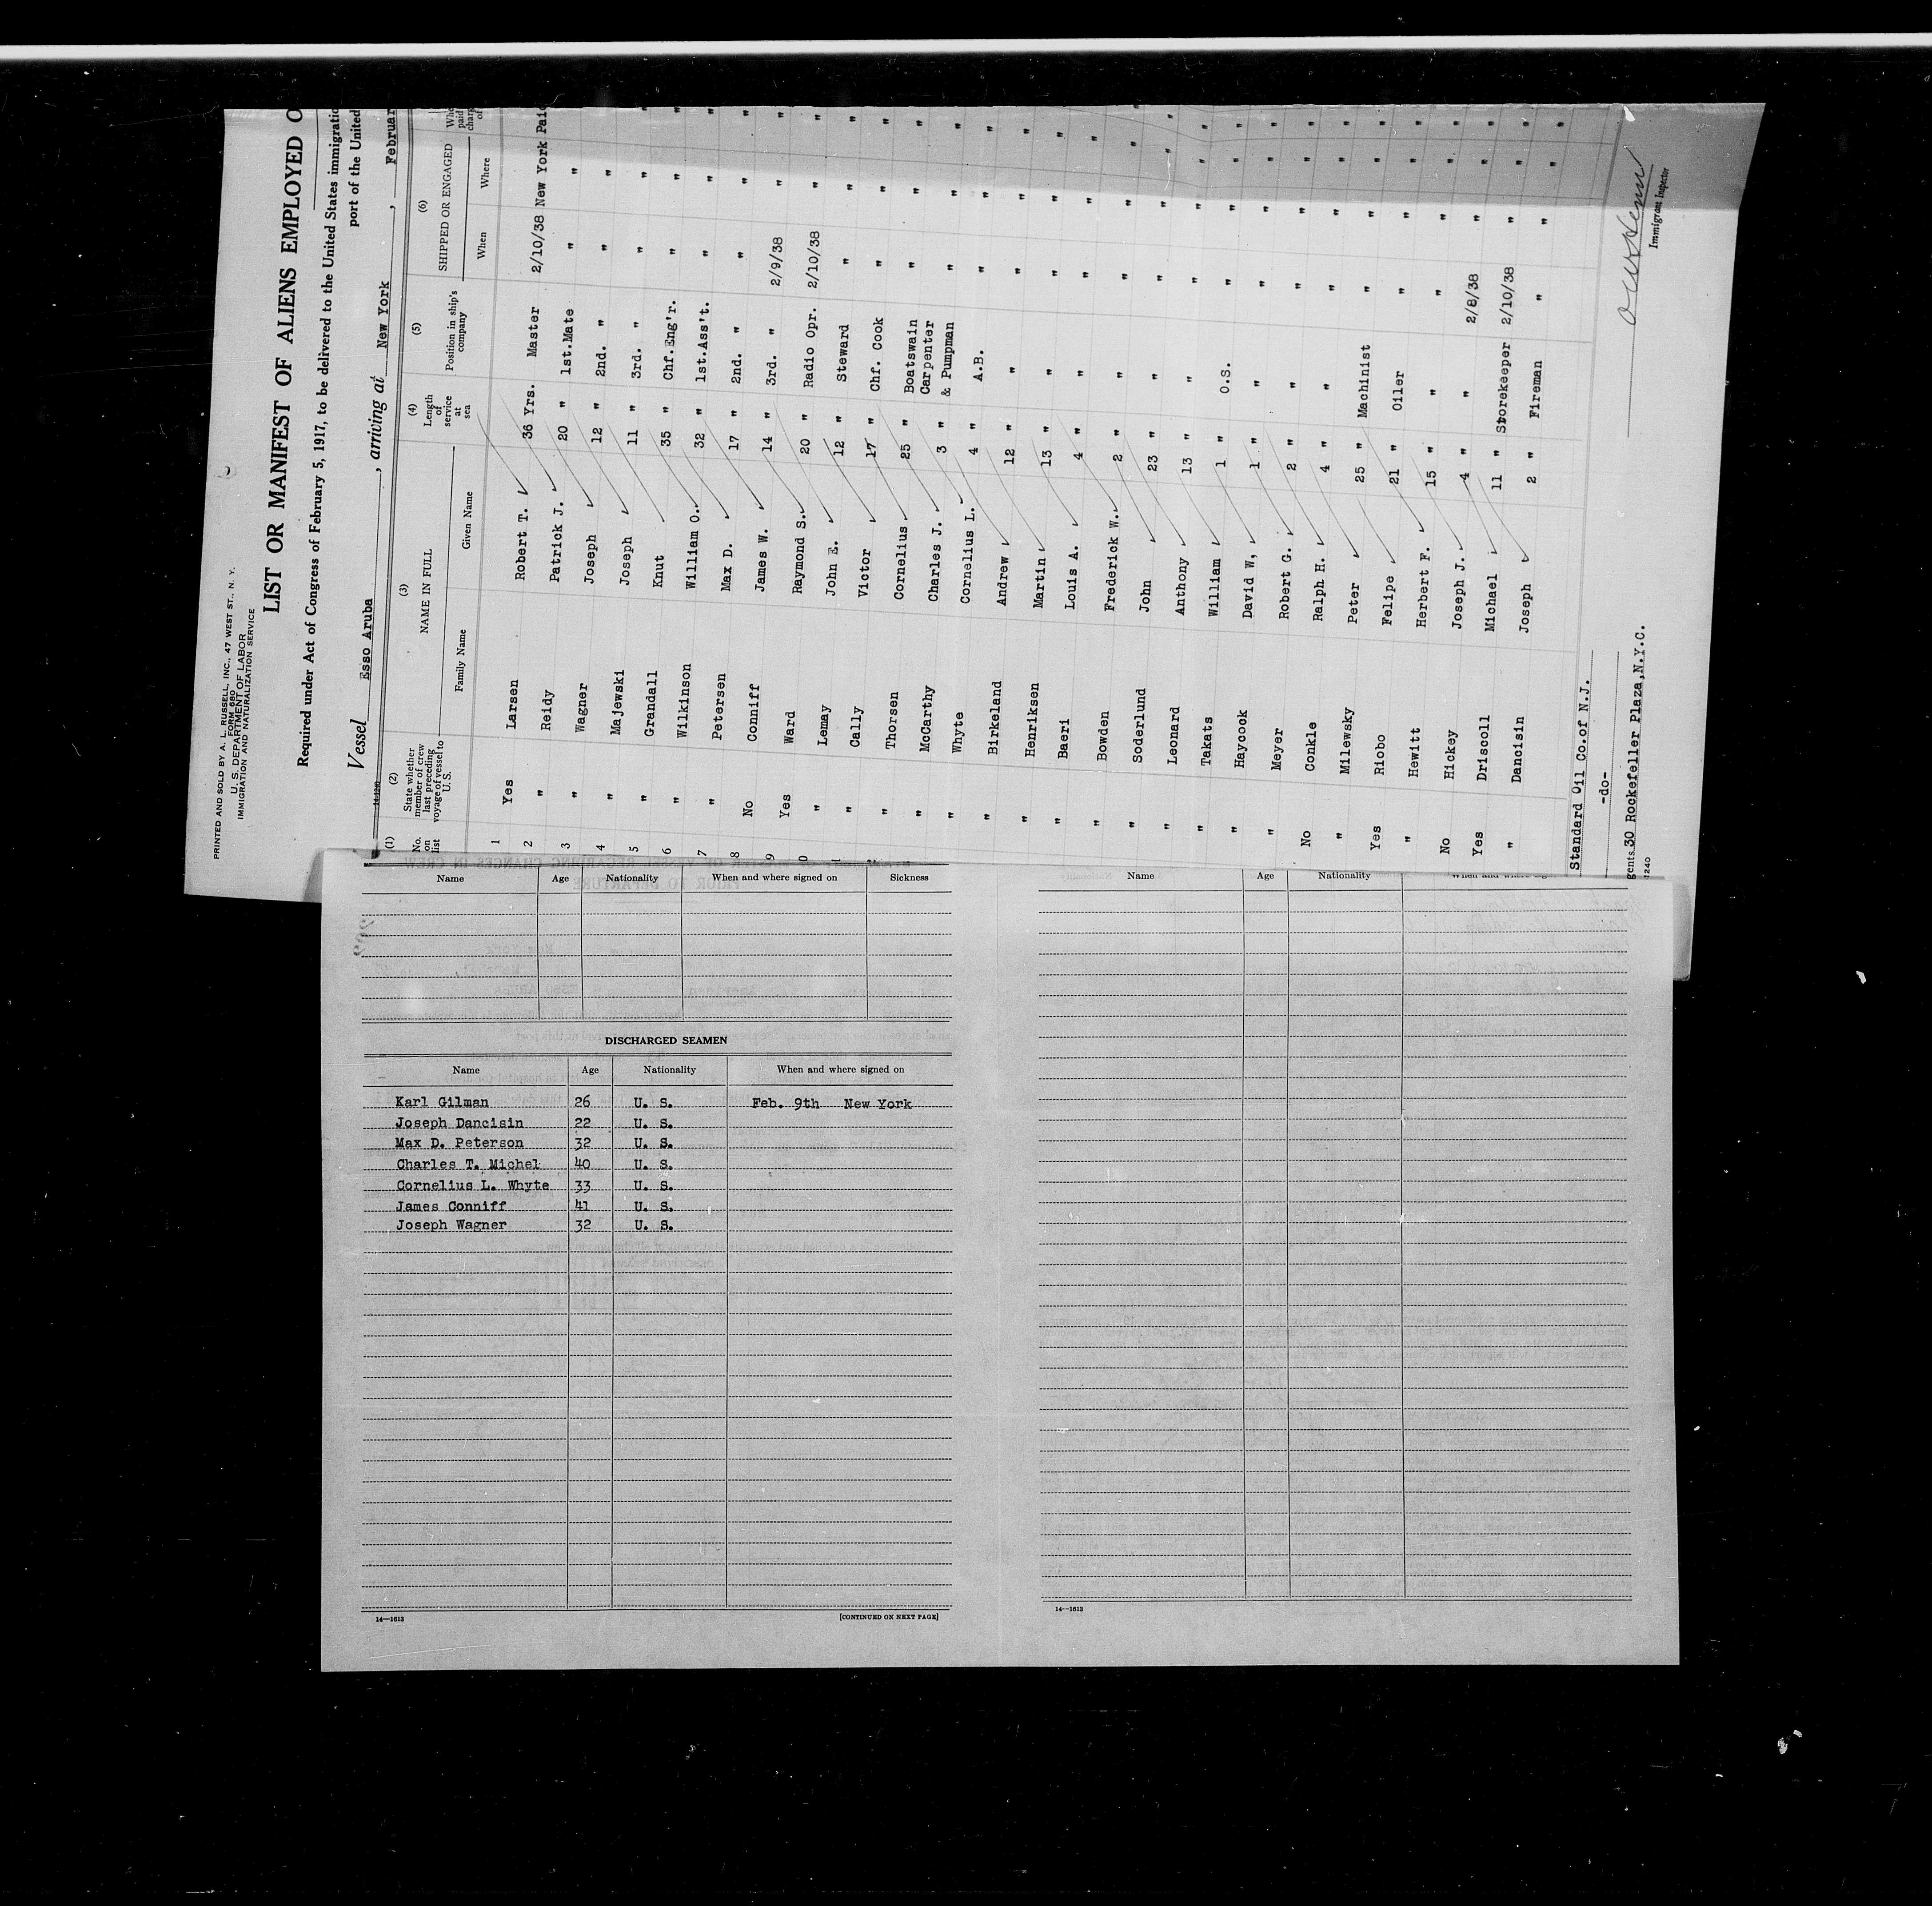 PRINTED AND SOLD BY A. L. RUSSELL, INC., 47 WEST ST., N. Y.
FORM 680
U. S. DEPARTMENT OF LABOR
IMMIGRATION AND NATURALIZATION SERVICE
LIST OR MANIFEST OF ALIENS EMPLOYED O
Required under Act of Congress of February 5, 1917, to be delivered to the United States immigratio
port of the United
Vessel Esso Aruba, arriving at New York, Februar
14-1240
(1) (2) (3) (4) (5) (6)
No. on list State whether member of crew last preceding voyage of vessel to U.S. NAME IN FULL Length of service at sea Position in ship's company SHIPPED OR ENGAGED Who paid charg of
Family Name Given Name When Where
1 Yes Larsen Robert T. 36 Yrs. Master 2/10/38 New York Paid
2 " Reidy Patrick J. 20 " 1st.Mate " " "
3 " Wagner Joseph 12 " 2nd. " " " "
4 " Majewski Joseph 11 " 3rd. " " " "
5 " Grandall Knut 35 " Chf.Eng'r. " " "
6 " Wilkinson William O. 32 " 1st.Ass't. " " "
7 " Petersen Max D. 17 " 2nd. " " " "
8 No Conniff James W. 14 " 3rd. " 2/9/38 " "
9 Yes Ward Raymond S. 20 " Radio Opr. 2/10/38 " "
0 " Lemay John E. 12 " Steward " " "
1 " Cally Victor 17 " Chf. Cook " " "
" Thorsen Cornelius 25 " Boatswain " " "
" McCarthy Charles J. 3 " Carpenter & Pumpman " " "
" Whyte Cornelius L. 4 " A.B. " " "
" Birkeland Andrew 12 " " " " "
" Henriksen Martin 13 " " " " "
" Baeri Louis A. 4 " " " " "
" Bowden Frederick W. 2 " " " " "
" Soderlund John 23 " " " " "
" Leonard Anthony 13 " " " " "
" Takats William 1 " O.S. " " "
" Haycock David W, 1 " " " " "
" Meyer Robert G. 2 " " " " "
No Conkle Ralph H. 4 " " " " "
" Milewsky Peter 25 " Machinist " " "
Yes Riobo Felipe 21 " Oiler " " "
" Hewitt Herbert F. 15 " " " " "
No Hickey Joseph J. 4 " " 2/8/38 " "
Yes Driscoll Michael 11 " Storekeeper 2/10/38 " "
" Dancisin Joseph 2 " Fireman " " "
Standard Oil Co.of N.J.
-do-
gents. 30 Rockefeller Plaza,N.Y.C.
1240
Immigrant Inspector
Name Age Nationality When and where signed on Sickness
DISCHARGED SEAMEN
Name Age Nationality When and where signed on
Karl Gilman 26 U. S. Feb. 9th New York
Joseph Dancisin 22 U. S.
Max D. Peterson 32 U. S.
Charles T. Michel 40 U. S.
Cornelius L. Whyte 33 U. S.
James Conniff 41 U. S.
Joseph Wagner 32 U. S.
14—1613 [CONTINUED ON NEXT PAGE]
Name Age Nationality When and where sig
14—1613